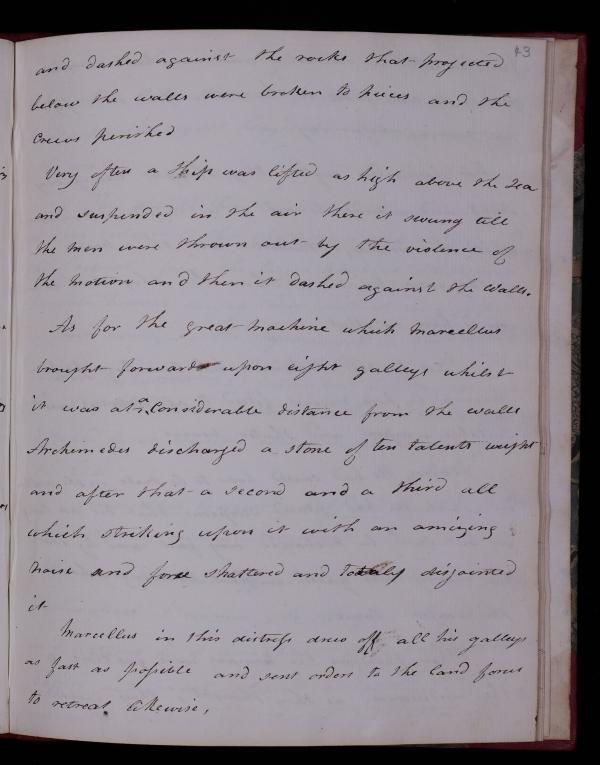 43
and dashed against the rocks that projected
below the walls were broken to pieces and the
Crews perished
Very often a ship was lifted as high above the sea
and suspended in the air there it swung till
the men were thrown out by the violence of
the motion and then it dashed against the walls.
As for the great machine which Marcellus
brought forward upon eight galleys whilst
it was at a Considerable distance from the walls
Archimedes discharged a stone of ten talents weight
and after that a second and a third all
which striking upon it with an amizing
noise and force shattered and totaly disjointed
it
Marcellus in this distress drew off all his galleys
as fast as possible and sent orders to the land forces
to retreat likewise,